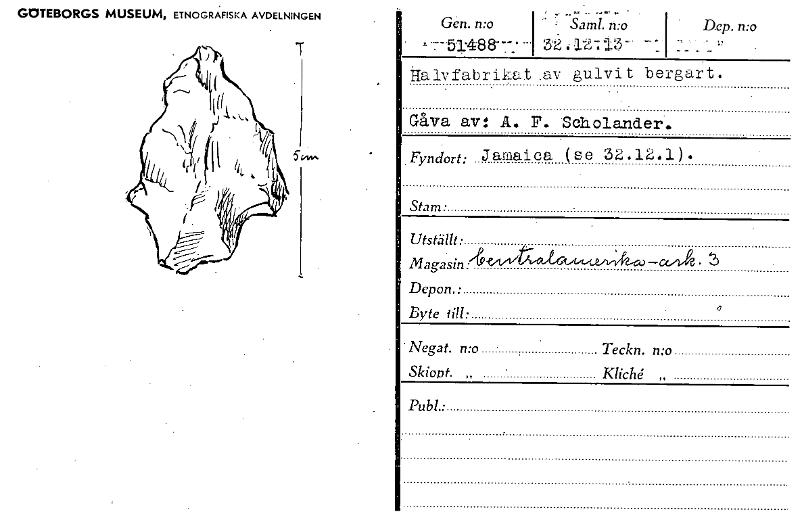 GÖTEBORGS MUSEUM, ETNOGRAFISKA AVDELNINGEN
5cm
Gen. n:o Saml. n:o Dep. n:o
51488 32.12.13
Halvfabrikat av gulvit bergart.
Gåva av: A. F. Scholander.
Fyndort: Jamaica (se 32.12.1).
Stam:
Utställt:
Magasin: Centralamerika-ark. 3
Depon.:
Byte till:
Negat. n:o Teckn. n:o
Skiopt. „ Kliché „
Publ.: